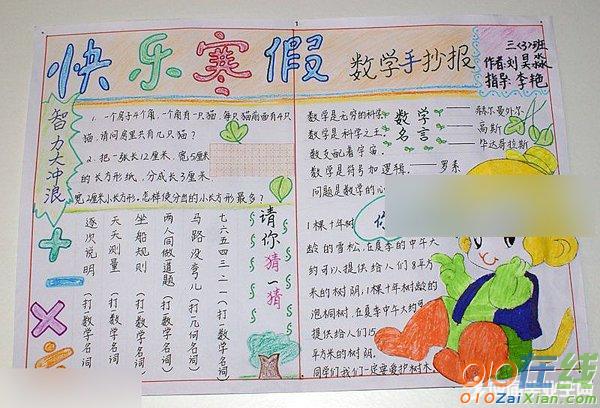 快乐寒假
数学手抄报
三〈3〉班
作者:刘昊淼
指导:李艳
智力大冲浪
1. 一个房子4个角,一个角有一只猫,每只猫前面有4只
猫,请问房里共有几只猫?
2. 把一张长12厘米,宽5厘米
的长方形纸,分成长3厘米,
宽2厘米小长方形,怎样使分出的小长方形最多?
请你猜一猜
七六五四三二一(打一数学名词)
马路没弯儿(打几何名词)
两人同做道题(打一数学名词)
坐船规则(打一数学名词)
天天测量(打一数学名词)
逐次说明(打一数学名词)
数学名言
数学是无穷的科学——赫尔曼外尔
数学是科学之王——高斯
数支配着宇宙。——毕达哥拉斯
数学是符号加逻辑。——罗素
问题是数学的心
你
1棵十年树
龄的雪松,在夏季的中午大
约可以提供给人们8平方
米的树阴;1棵十年树龄的
泡桐树,在夏季中午大约
提供给人们15
平方米的树阴。
同学们我们一定要爱护树木
010在线
010ZaiXian.com